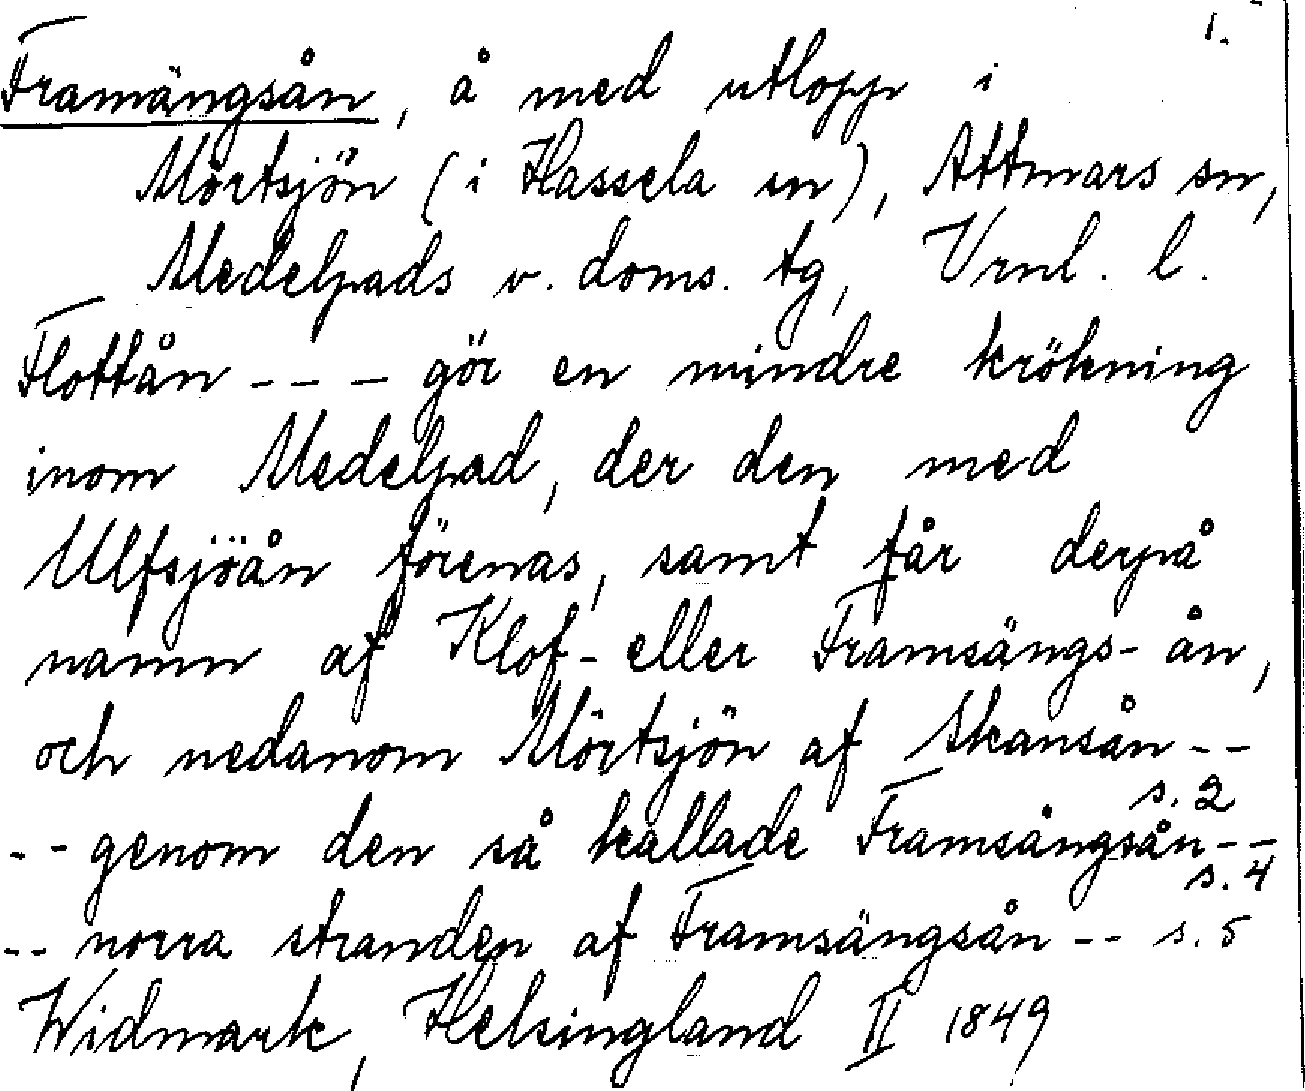 1.
Framängsån, å med utlopp i
Mörtsjön (i Hassela sn), Attmars sn,
Medelpads v. doms. tg, Vrnl. l.
Flottån --- gör en mindre krökning
inom Medelpad, der den med
Ulfsjöån förenas, samt får derpå
namn af Klof- eller Framsängs-ån,
och nedanom Mörtsjön af Skansån --
s. 2
-- genom den så kallade Framsångsån --
s. 4
-- norra stranden af Framsängsån -- s. 5
Widmark, Helsingland II 1849